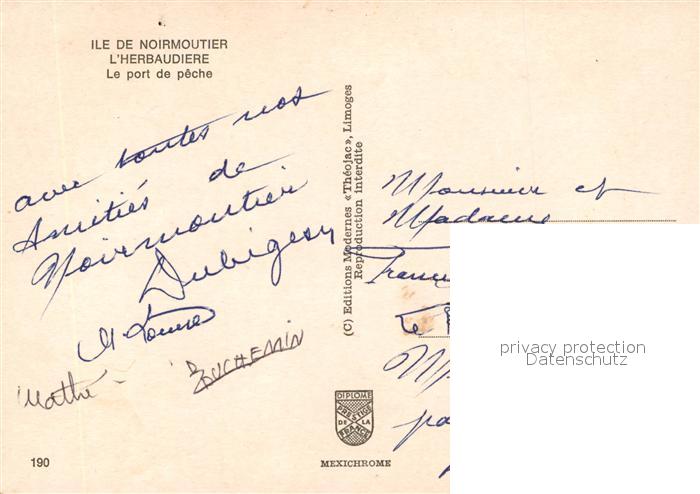 ILE DE NOIRMOUTIER
L'HERBAUDIERE
Le port de pêche
avec toutes nos
Amitiés de
Noirmoutier
Dubigeon
M Louise
Mathé
BUCHEMIN
190
(C) Editions Modernes «Théojac», Limoges
Reproduction Interdite
DIPLOME
PRESTIGE
DE LA
FRANCE
MEXICHROME
Monsieur et
Madame
Franç
Le
privacy protection
Datenschutz